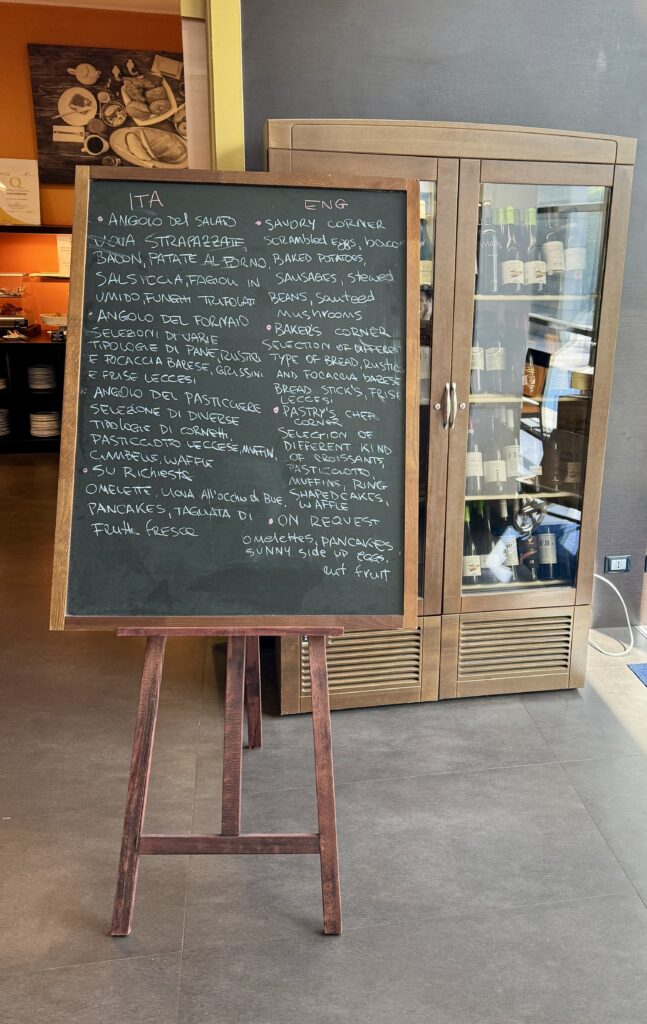 ITA
• ANGOLO DEL SALATO
UOVA STRAPAZZATE,
BACON, PATATE AL FORNO,
SALSICCIA, FAGIOLI IN
UMIDO, FUNGHI TRIFOLATI
• ANGOLO DEL FORNAIO
SELEZIONI DI VARIE
TIPOLOGIE DI PANE, RUSTICI
E FOCACCIA BARESE, GRISSINI
E FRISE LECCESI
• ANGOLO DEL PASTICCIERE
SELEZIONE DI DIVERSE
TIPOLOGIE DI CORNETTI,
PASTICCIOTTO LECCESE, MUFFIN,
CIAMBELLE, WAFFLE
• SU RICHIESTA
OMELETTE, UOVA All'OCCHIO di BUE,
PANCAKES, TAGLIATA DI
FRUTTA fresca
ENG
• SAVORY CORNER
SCRAMBLED EGGS, BACO
BAKED POTATOES,
SAUSAGES, STEWED
BEANS, SAUTEED
MUSHROOMS
• BAKER'S CORNER
SELECTION OF DIFFERENT
TYPE OF BREAD, RUSTIC
AND FOCACCIA BARESE
BREAD STICK'S, FRISE
LECCESI
• PASTRY'S CHEF
CORNER
SELECTION OF
DIFFERENT KIND
OF CROISSANTS,
PASTICCIOTTO
MUFFINS, RING
SHAPED CAKES,
WAFFLE
• ON REQUEST
OMELETTES, PANCAKES
SUNNY side UP EGGS,
cut fruit
Q